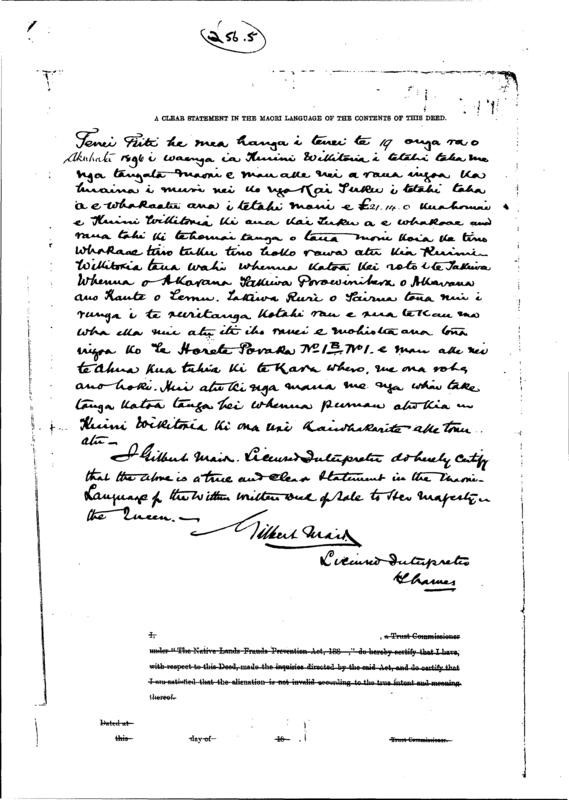 256.5
A CLEAR STATEMENT IN THE MAORI LANGUAGE OF THE CONTENTS OF THIS DEED.
Tenei Tiiti he mea hanga i tenei te 19 o nga ra o
Akuhata 1896 i waenga ia Kuini Wikitoria i tetahi taha me
nga tangata Maori e mau ake nei a ratou ingoa ka
tuaina i muri nei ko nga Kai Tuku i tetahi taha
a e whakaatu ana i tetahi moni e £21.14.0 kua homai
e Kuini Wikitoria ki ana Kai Tuku a e whakaae ana
ratou tahi ki te homaitanga o taua moni koia ka tino
whakaae tino tuku tino hoko rawa atu kia Kuini
Wikitoria taua wahi whenua katoa kei roto i te Takiwa
Whenua o Akarana Takiwa Porowinihera o Akarana
ano Kaute o Takiwa Ruri o Tairua tona nui i
runga i te ruritanga kotahi rau e rua tekau ma
wha eka nui atu iti iho ranei e mohiotia ana tona
ingoa ko Te Horete Poraka No 1B No 1. e mau ake nei
te ahua kua tuhia ki te Kara whero, me ona rohe
ano hoki. Hui atu ki nga mana me nga whai take
tanga katoa tanga hei whenua pumau atu kia
Kuini Wikitoria ki ona uri Kaiwhakarite ake tonu
atu —
I Gilbert Mair. Licensed Interpreter do hereby certify
that the above is a true and clear Statement in the Maori
Language of the within written Deed of Sale to Her Majesty
the Queen. —
Gilbert Mair
Licensed Interpreter
Thames
I, , a Trust Commissioner
under "The Native Lands Frauds Prevention Act, 188 ," do hereby certify that I have,
with respect to this Deed, made the inquiries directed by the said Act, and do certify that
I am satisfied that the alienation is not invalid according to the true intent and meaning
thereof.
Dated at
this day of 18
Trust Commissioner.